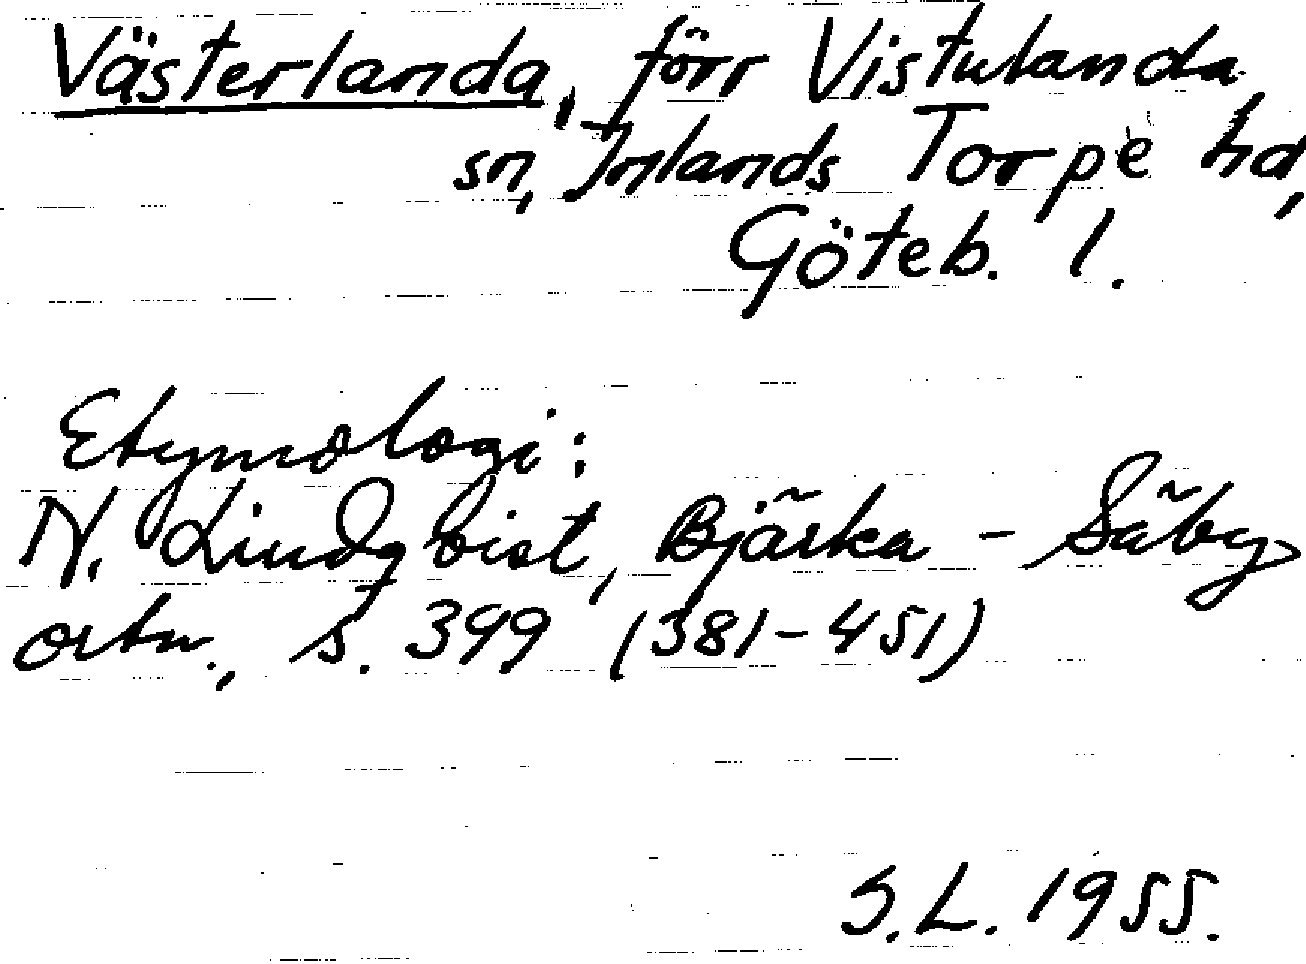 Västerlanda, förr Vistulanda
sn, Inlands Torpe hd,
Göteb. l.
Etymologi:
N. Lindqvist, Bjärka-Säby
ortn., s. 399 (381-451)
S.L. 1955.